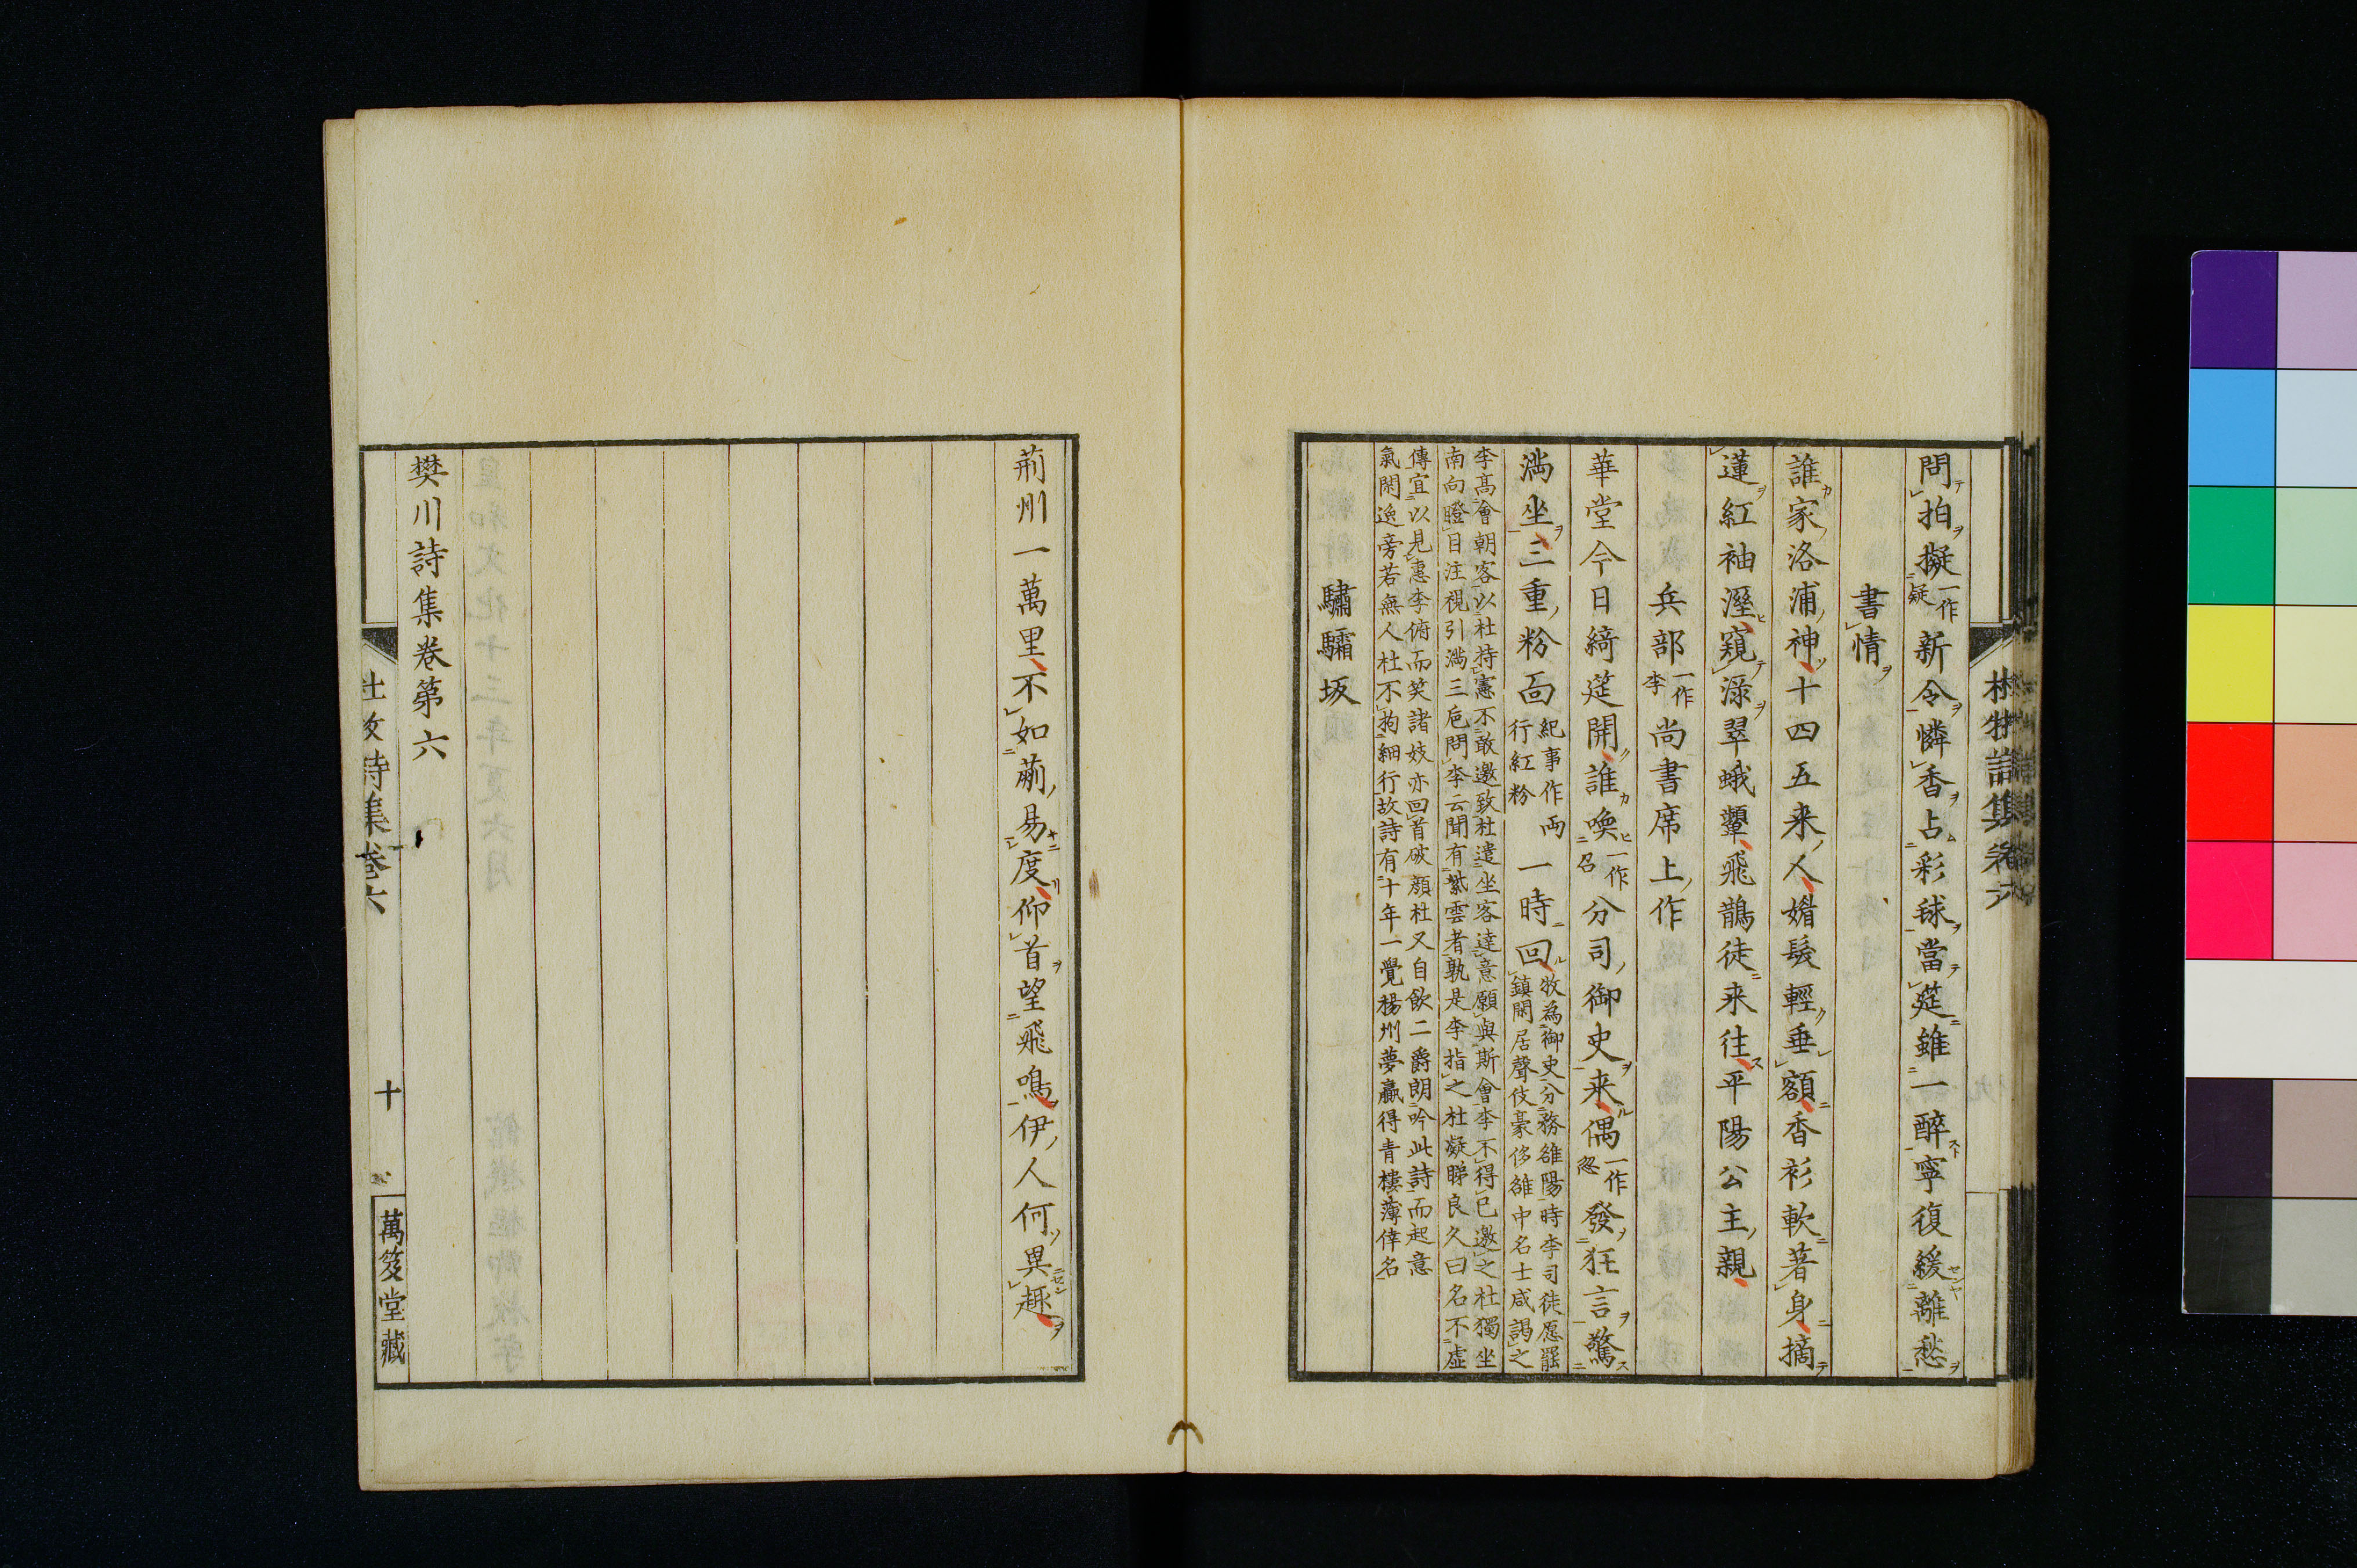 問拍擬一作疑新令憐香占彩毬當筵雖一醉寧復緩離愁
書情
誰家洛浦神十四五来人媚髮輕垂額香衫軟著身摘
蓮紅袖溼窺渌翠蛾顰飛鵲徒来往平陽公主親
兵部一作李尚書席上作
華堂今日綺筵開誰喚一作召分司御史来偶一作忽發狂言驚
満坐三重粉面紀事作両行紅粉一時回牧為御史分務雒陽時李司徒愿罷
鎮閑居聲伎豪侈雒中名士咸謁之
李髙會朝客以杜持憲不敢邀致杜遣坐客達意願與斯會李不得已邀之杜獨坐
南向瞪目注視引満三巵問李云聞有紫雲者孰是李指之杜凝睇良久曰名不虚
傳宜以見惠李俯而笑諸妓亦回首破顔杜又自飲二爵朗吟此詩而起意
氣閑逸旁若無人杜不拘細行故詩有十年一覺揚州夢贏得青樓薄倖名
驌驦坂
荊州一萬里不如蒯易度仰首望飛鳴伊人何異趣
樊川詩集巻第六
杜牧詩集巻六
十
萬笈堂藏